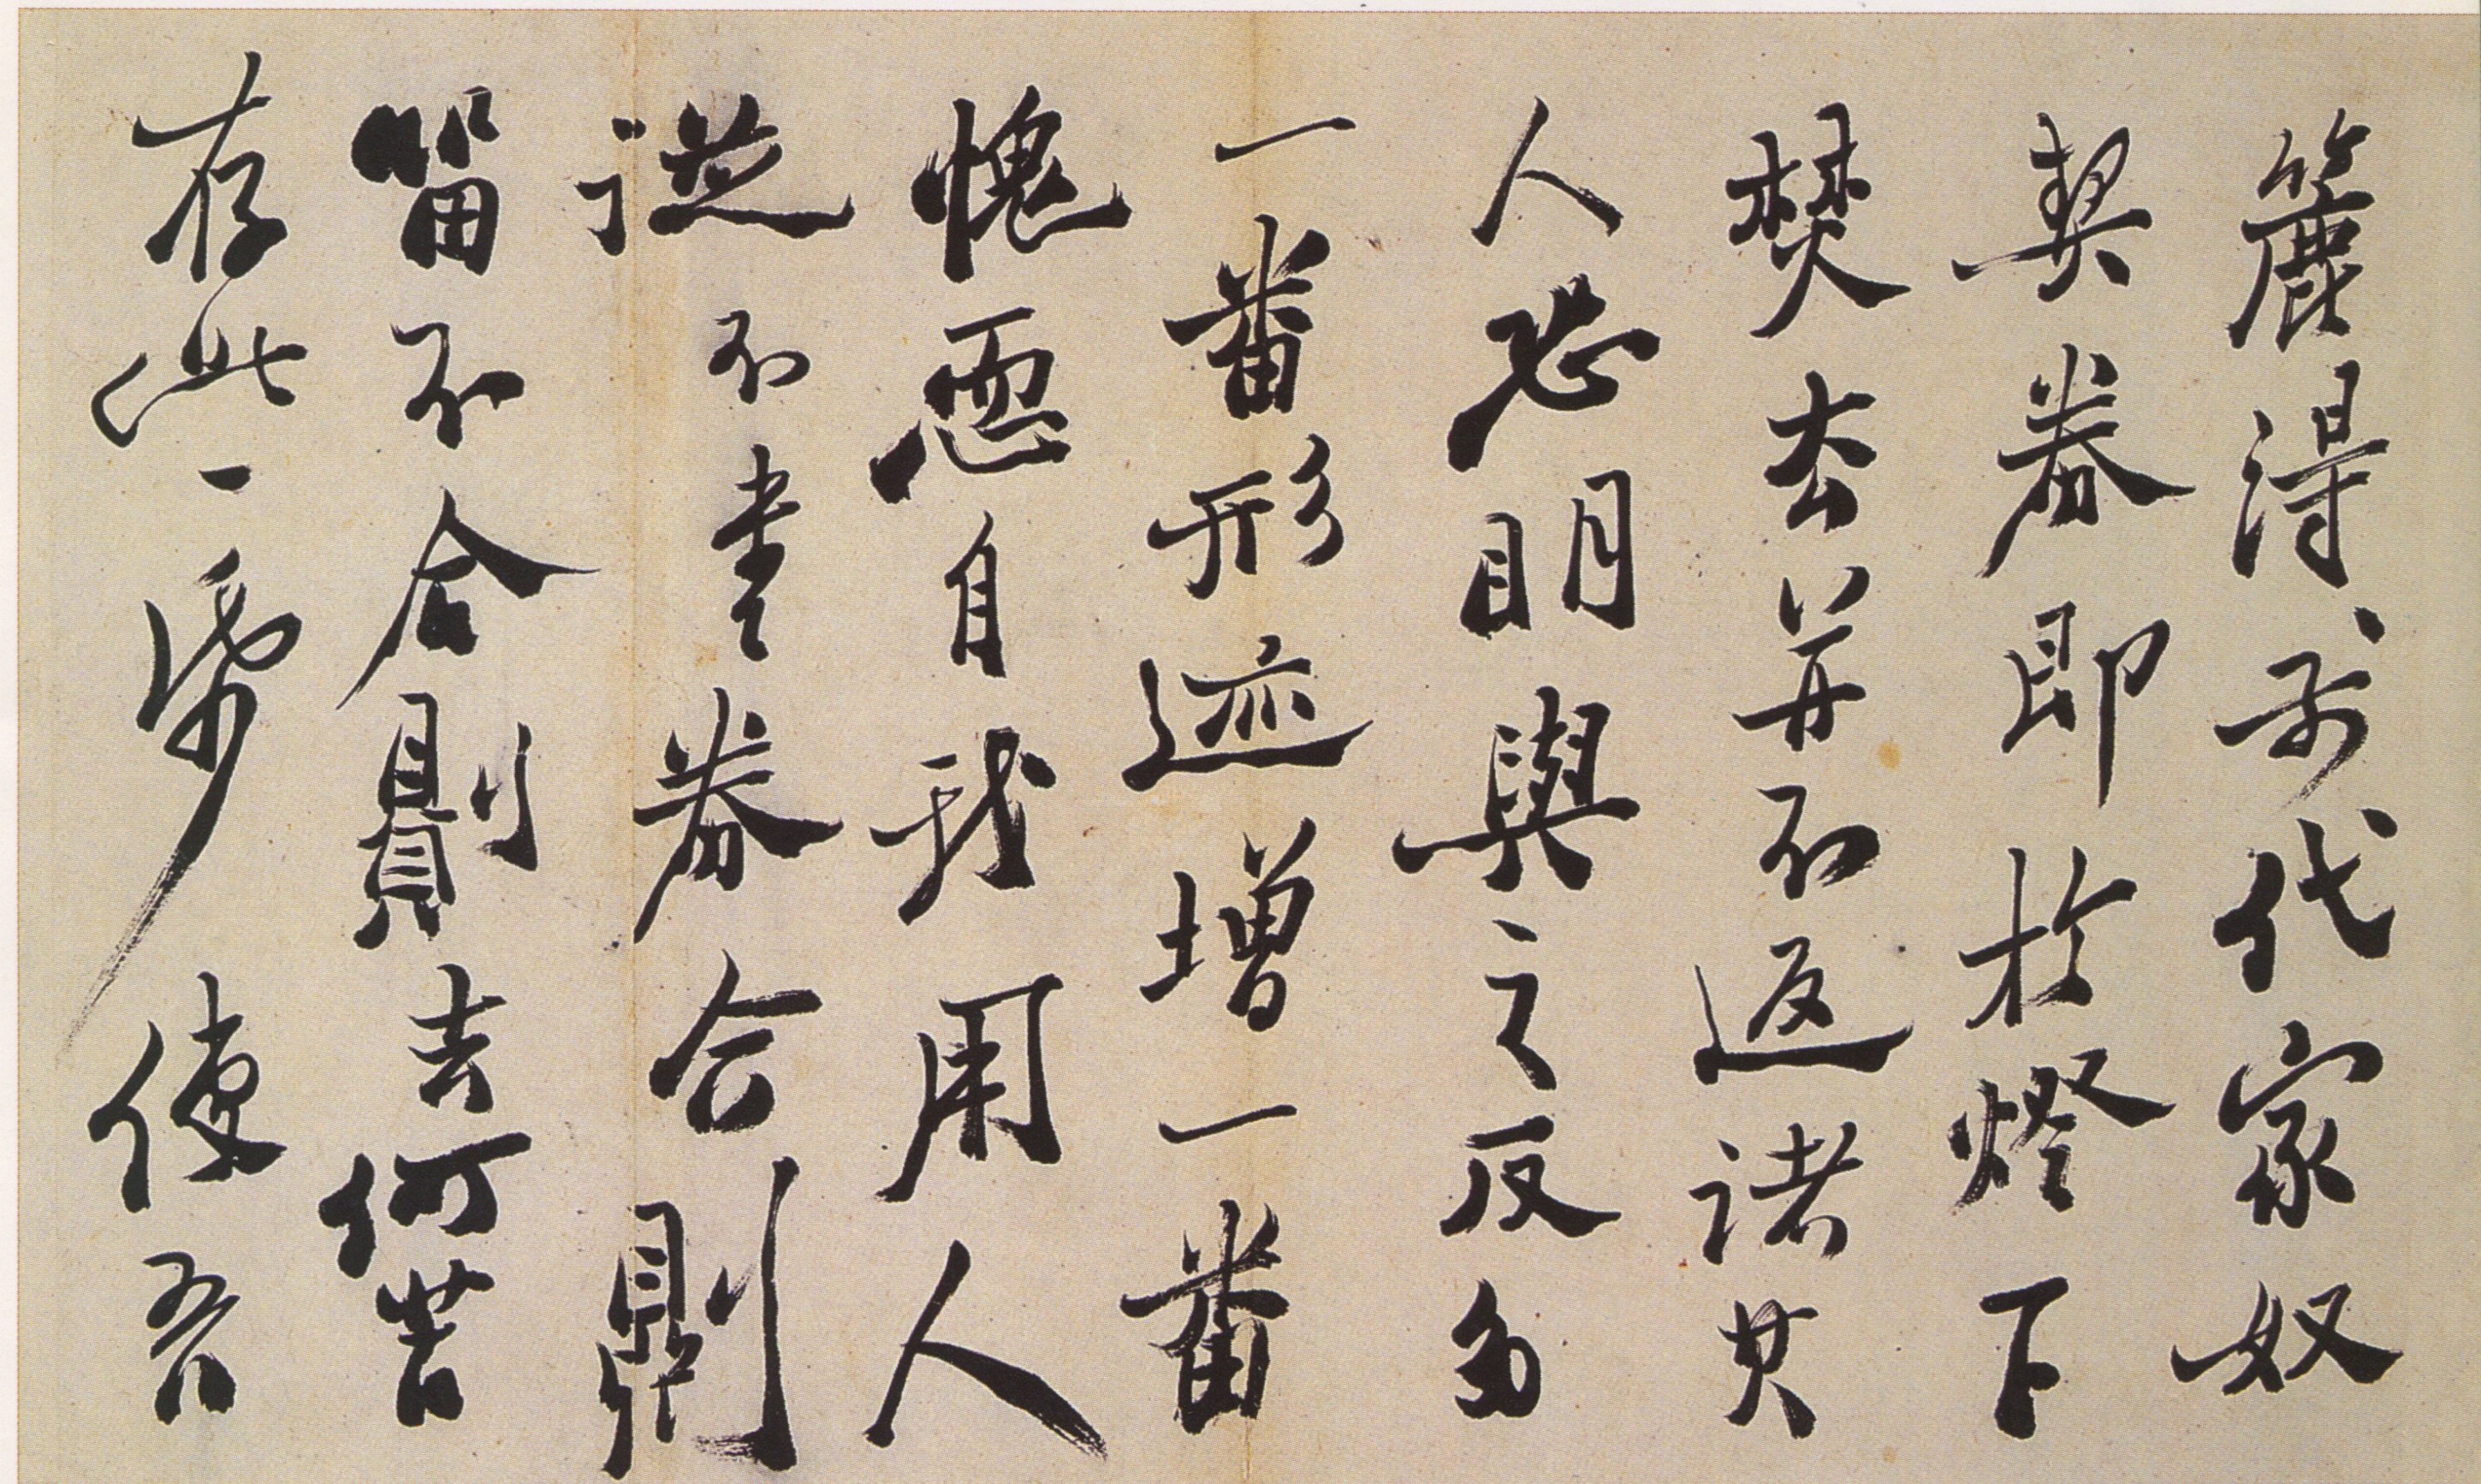 簏得前代家奴
契券即於燈下
焚去并不返諸其
人恐明與之反多
一番形迹增一番
愧恧自我用人
從不書券合則
留不合則去何苦
存此一帋使吾